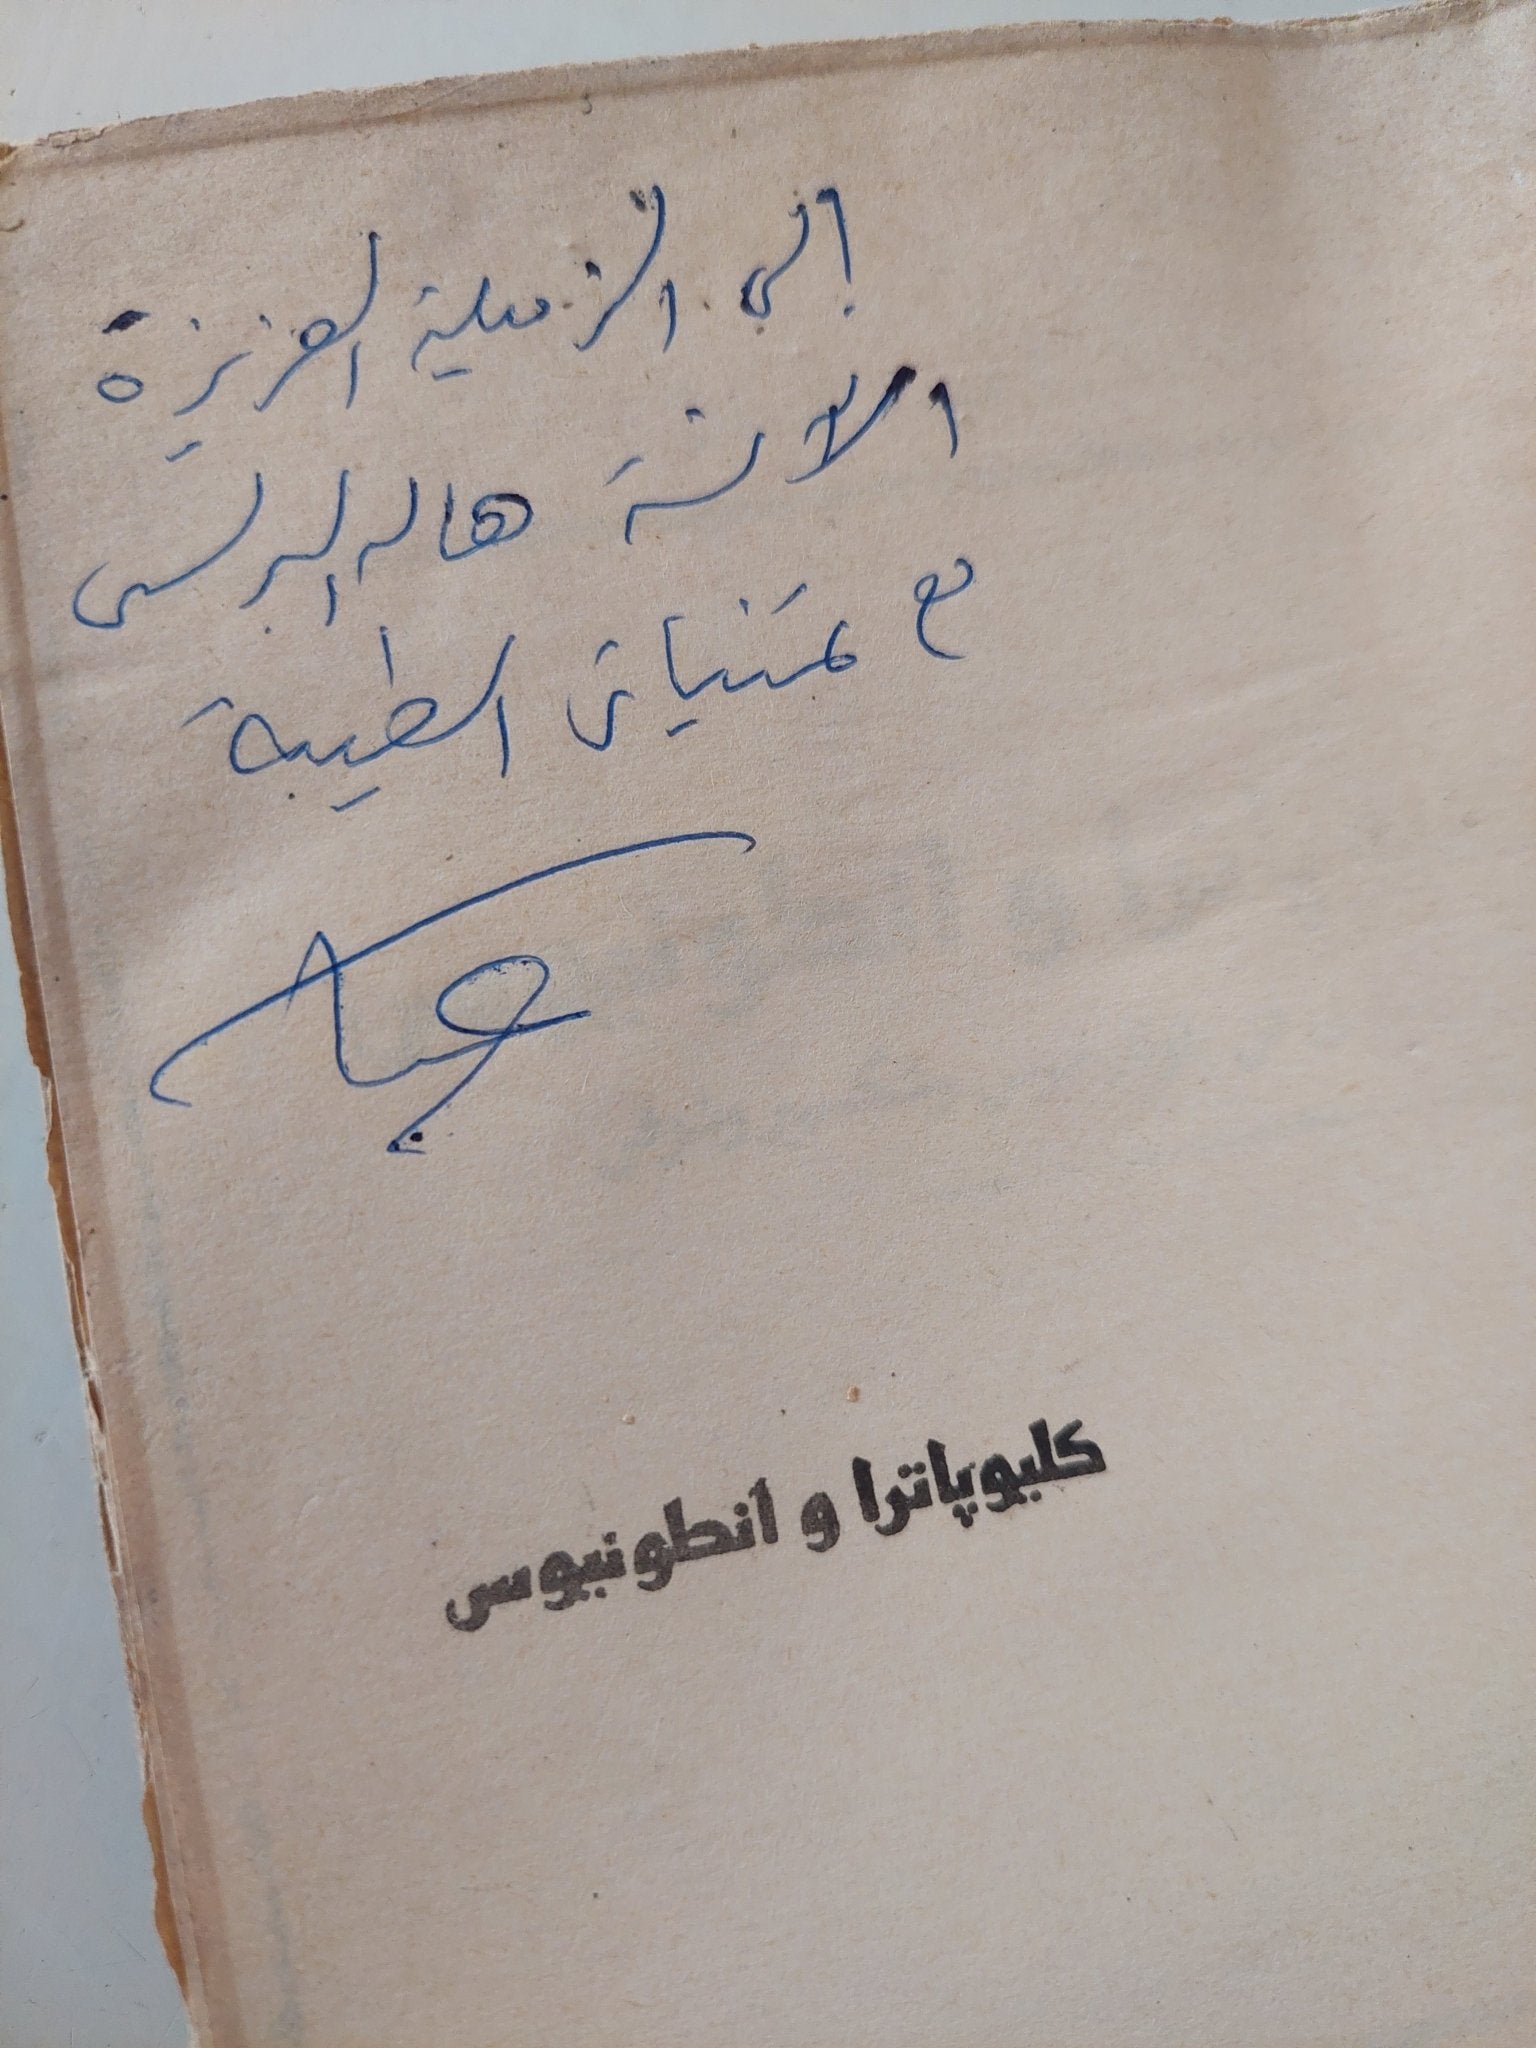 إلى الزميلة العزيزة
الانسة هاله البرلسى
مع تمنياتى الطيبة
كليوپاترا و أنطونيوس